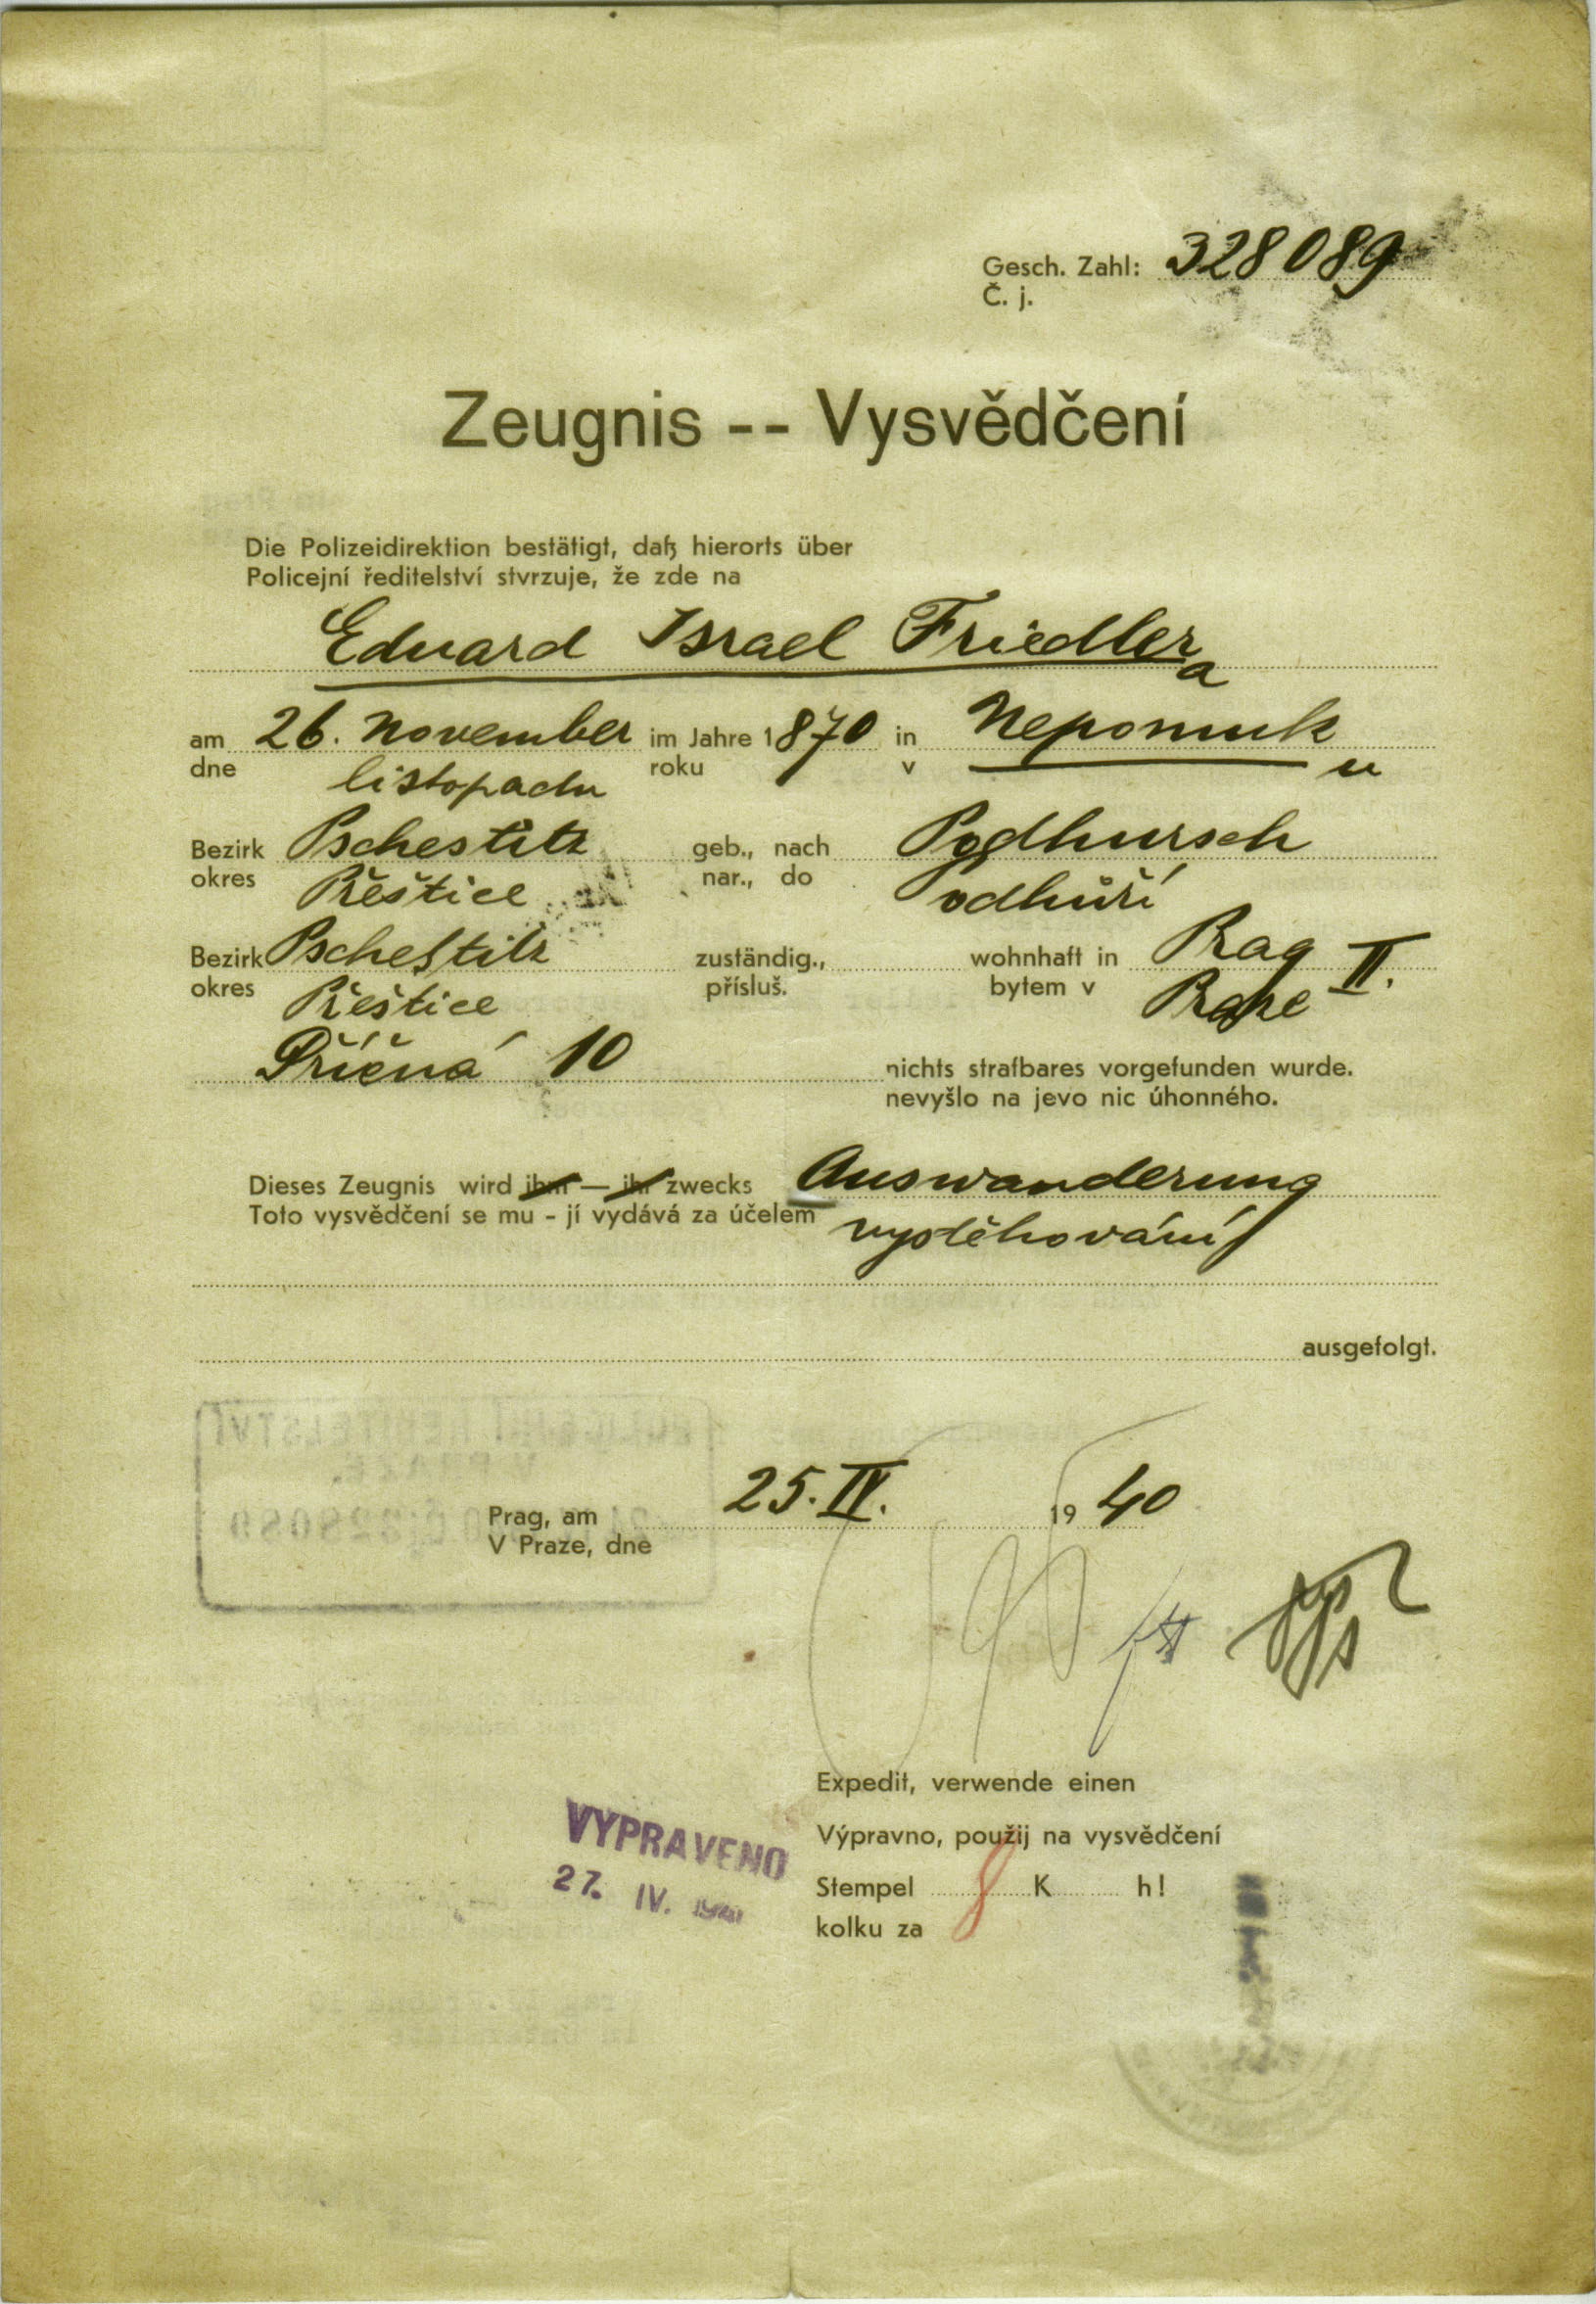 Gesch. Zahl: 328089
Č. j.
Zeugnis -- Vysvědčení
Die Polizeidirektion bestätigt, daß hierorts über
Policejní ředitelství stvrzuje, že zde na
Eduard Israel Friedler
a
am 26. November im Jahre 1870 in Nepomuk
dne listopadu roku v u
Bezirk Pschestitz geb., nach Podhursch
okres Přeštice nar., do Podhůří
Bezirk Pschestitz zuständig., wohnhaft in Prag II.
okres Přeštice přísluš. bytem v Praze
Příčná 10 nichts strafbares vorgefunden wurde.
nevyšlo na jevo nic úhonného.
Dieses Zeugnis wird ihm — ihr zwecks Auswanderung
Toto vysvědčení se mu - jí vydává za účelem vystěhování
ausgefolgt.
POLICEJNÍ ŘEDITELSTVÍ
V PRAZE
328089
Prag, am 25. IV. 1940
V Praze, dne
Expedit, verwende einen
Výpravno, použij na vysvědčení
Stempel 8 K h!
kolku za
VYPRAVENO
27. IV. 1940